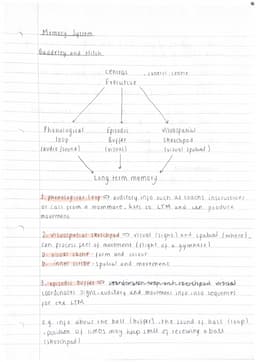 Memory System
Baddeley and Hitch
central control centre
Executive
Phonological Episodic Visuospatial
loop Buffer sketchpad
(audio/sound) (visual spatial)
Long term memory
1. phonological loop => auditory info such as coachs instructions
or calls from a teammate. links to LTM and can produce
movement
2. visuospatial sketchpad => visual (signs) and spatial (where),
can process feel of movement (flight of a gymnast)
visual cache: form and colour
inner scribe: spatial and movement
3. episodic buffer =>
coordinates sight, auditory and movement info into sequences
for the LTM
e.g. info about the ball (buffer), the sound of pass (loop)
position of limbs may help smell of receiving a pass
(sketchpad)